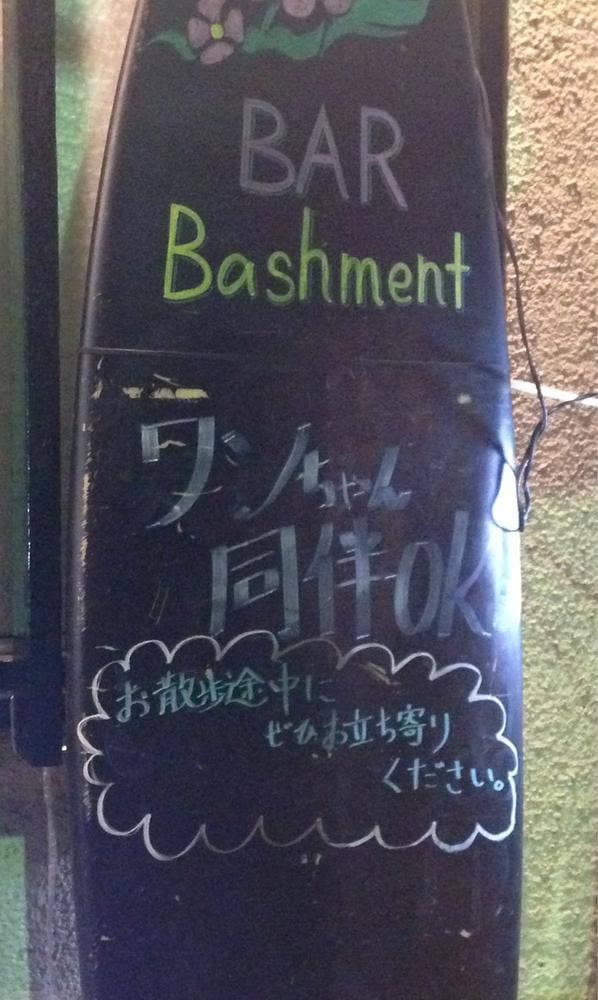 BAR
Bashment
ワンちゃん
同伴OK
お散歩途中に
ぜひお立ち寄り
ください。